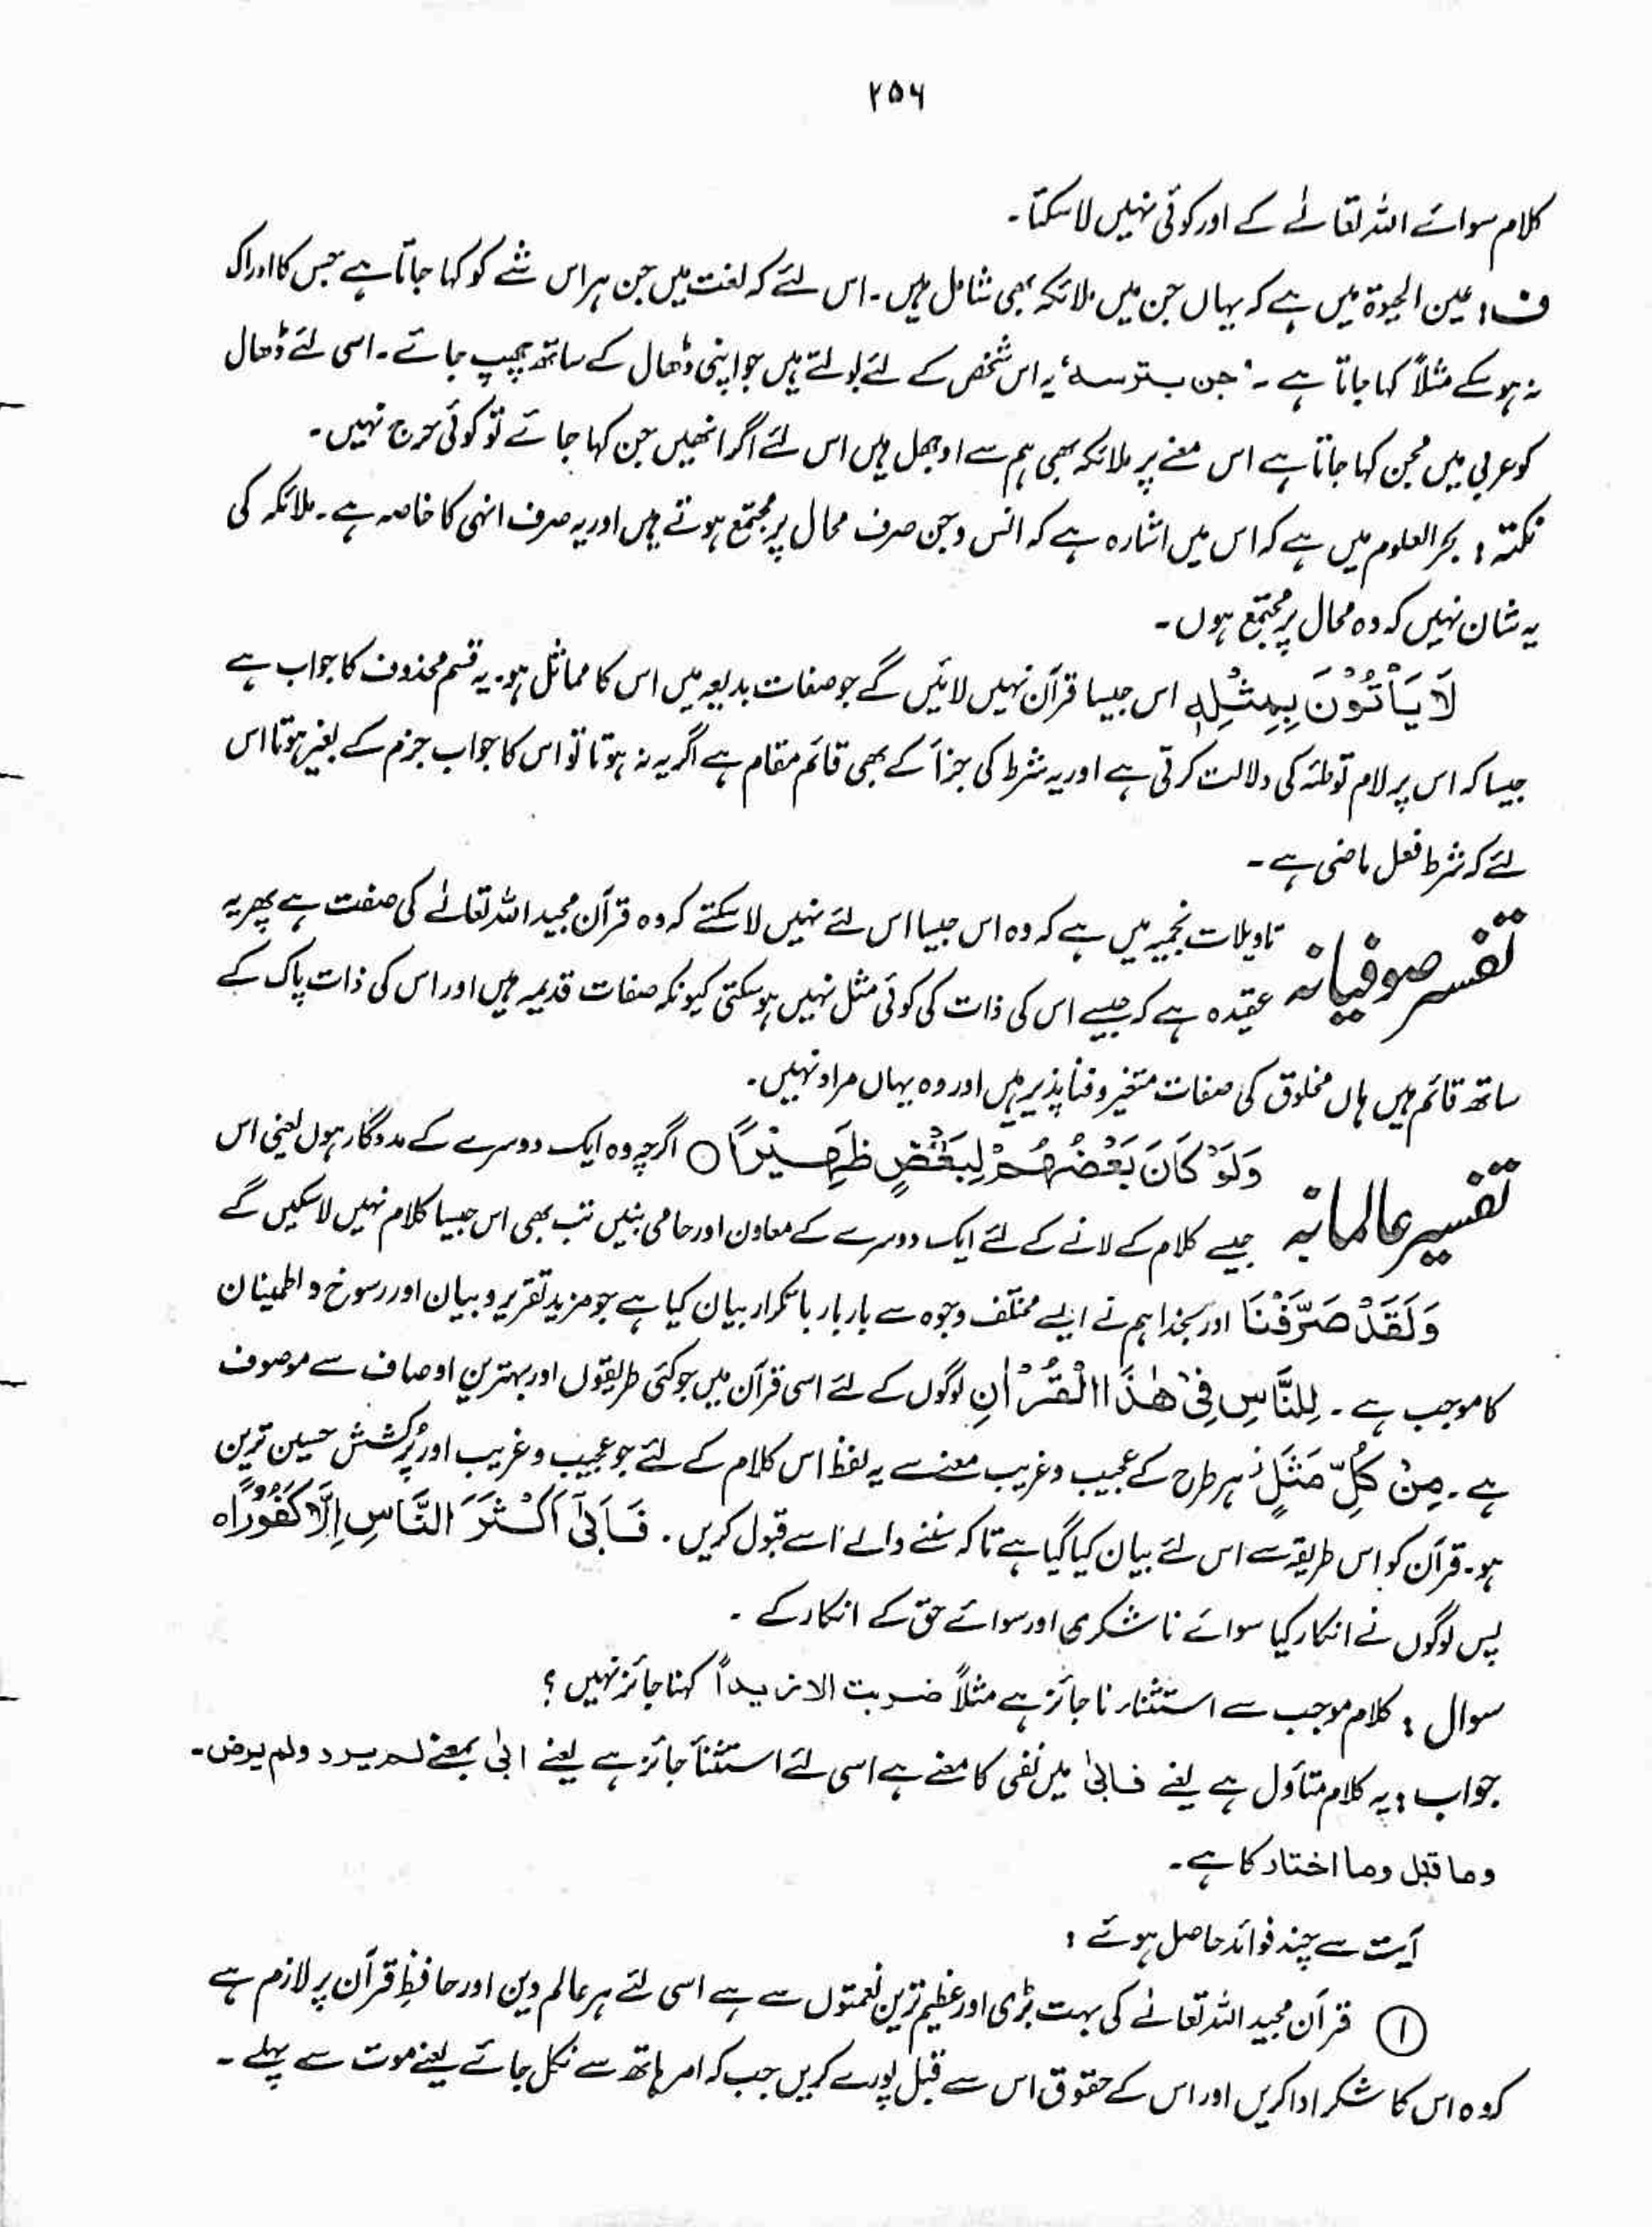 ۲۵۶
کلام سوائے اللہ تعالےٰ کے اور کوئی نہیں لا سکتا۔
ف : عین الحیوۃ میں ہے کہ یہاں جن میں ملائکہ بھی شامل ہیں۔ اس لئے کہ لغت میں جن ہر اس شے کو کہا جاتا ہے جس کا ادراک
نہ ہو سکے مثلاً کہا جاتا ہے ۔ "جن بترسہ" یہ اس شخص کے لئے بولتے ہیں جو اپنی ڈھال کے ساتھ چھپ جائے۔ اسی لئے ڈھال
کو عربی میں مجن کہا جاتا ہے اس معنے پر ملائکہ بھی ہم سے اوجھل ہیں اس لئے اگر انھیں جن کہا جائے تو کوئی حرج نہیں۔
نکتہ : بحر العلوم میں ہے کہ اس میں اشارہ ہے کہ انس و جن صرف محال پر مجتمع ہوتے ہیں اور یہ صرف انہی کا خاصہ ہے۔ ملائکہ کی
یہ شان نہیں کہ وہ محال پر مجتمع ہوں۔
لَا يَأْتُوْنَ بِمِثْلِهٖ اس جیسا قرآن نہیں لائیں گے جو صفات بدیعہ میں اس کا مماثل ہو۔ یہ قسم محذوف کا جواب ہے
جیسا کہ اس پر لام توطئہ کی دلالت کرتی ہے اور یہ شرط کی جزأ کے بھی قائم مقام ہے اگر یہ نہ ہوتا تو اس کا جواب جزم کے بغیر ہوتا اس
لئے کہ شرط فعل ماضی ہے۔
تفسیر صوفیانہ تاویلات نجمیہ میں ہے کہ وہ اس جیسا اس لئے نہیں لا سکتے کہ وہ قرآن مجید اللہ تعالےٰ کی صفت ہے پھر یہ
عقیدہ ہے کہ جیسے اس کی ذات کی کوئی مثل نہیں ہو سکتی کیونکہ صفات قدیمہ ہیں اور اس کی ذات پاک کے
ساتھ قائم ہیں ہاں مخلوق کی صفات متغیر و فنا پذیر ہیں اور وہ یہاں مراد نہیں۔
تفسیر عالمانہ وَلَوْ كَانَ بَعْضُهُمْ لِبَعْضٍ ظَهِيْرًا ○ اگرچہ وہ ایک دوسرے کے مددگار ہوں یعنی اس
جیسے کلام کے لانے کے لئے ایک دوسرے کے معاون اور حامی بنیں تب بھی اس جیسا کلام نہیں لا سکیں گے
وَلَقَدْ صَرَّفْنَا اور بخدا ہم نے ایسے مختلف وجوہ سے بار بار با تکرار بیان کیا ہے جو مزید تقریر و بیان اور رسوخ و اطمینان
کا موجب ہے ۔ لِلنَّاسِ فِيْ هٰذَا الْقُرْاٰنِ لوگوں کے لئے اسی قرآن میں جو کئی طریقوں اور بہترین اوصاف سے موصوف
ہے ۔ مِنْ كُلِّ مَثَلٍ ز ہر طرح کے عجیب و غریب معنے سے یہ لفظ اس کلام کے لئے جو عجیب و غریب اور پُرکشش حسین ترین
ہو۔ قرآن کو اس طریقہ سے اس لئے بیان کیا گیا ہے تاکہ سننے والے اسے قبول کریں ۔ فَاَبٰىٓ اَكْثَرُ النَّاسِ اِلَّا كُفُوْرًا ہ
پس لوگوں نے انکار کیا سوائے ناشکری اور سوائے حق کے انکار کے ۔
سوال : کلام موجب سے استثنار ناجائز ہے مثلاً ضربت الا زیداً کہنا جائز نہیں ؟
جواب : یہ کلام متأول ہے یعنے فابیٰ میں نفی کا معنے ہے اسی لئے استثنأ جائز ہے یعنے ابیٰ بمعنے لم یرد ولم یرض۔
وما قبل وما اختار کا ہے۔
آیت سے چند فوائد حاصل ہوئے :
① قرآن مجید اللہ تعالےٰ کی بہت بڑی اور عظیم ترین نعمتوں سے ہے اسی لئے ہر عالم دین اور حافظِ قرآن پر لازم ہے
کہ وہ اس کا شکر ادا کریں اور اس کے حقوق اس سے قبل پورے کریں جب کہ امر ہاتھ سے نکل جائے یعنے موت سے پہلے ۔